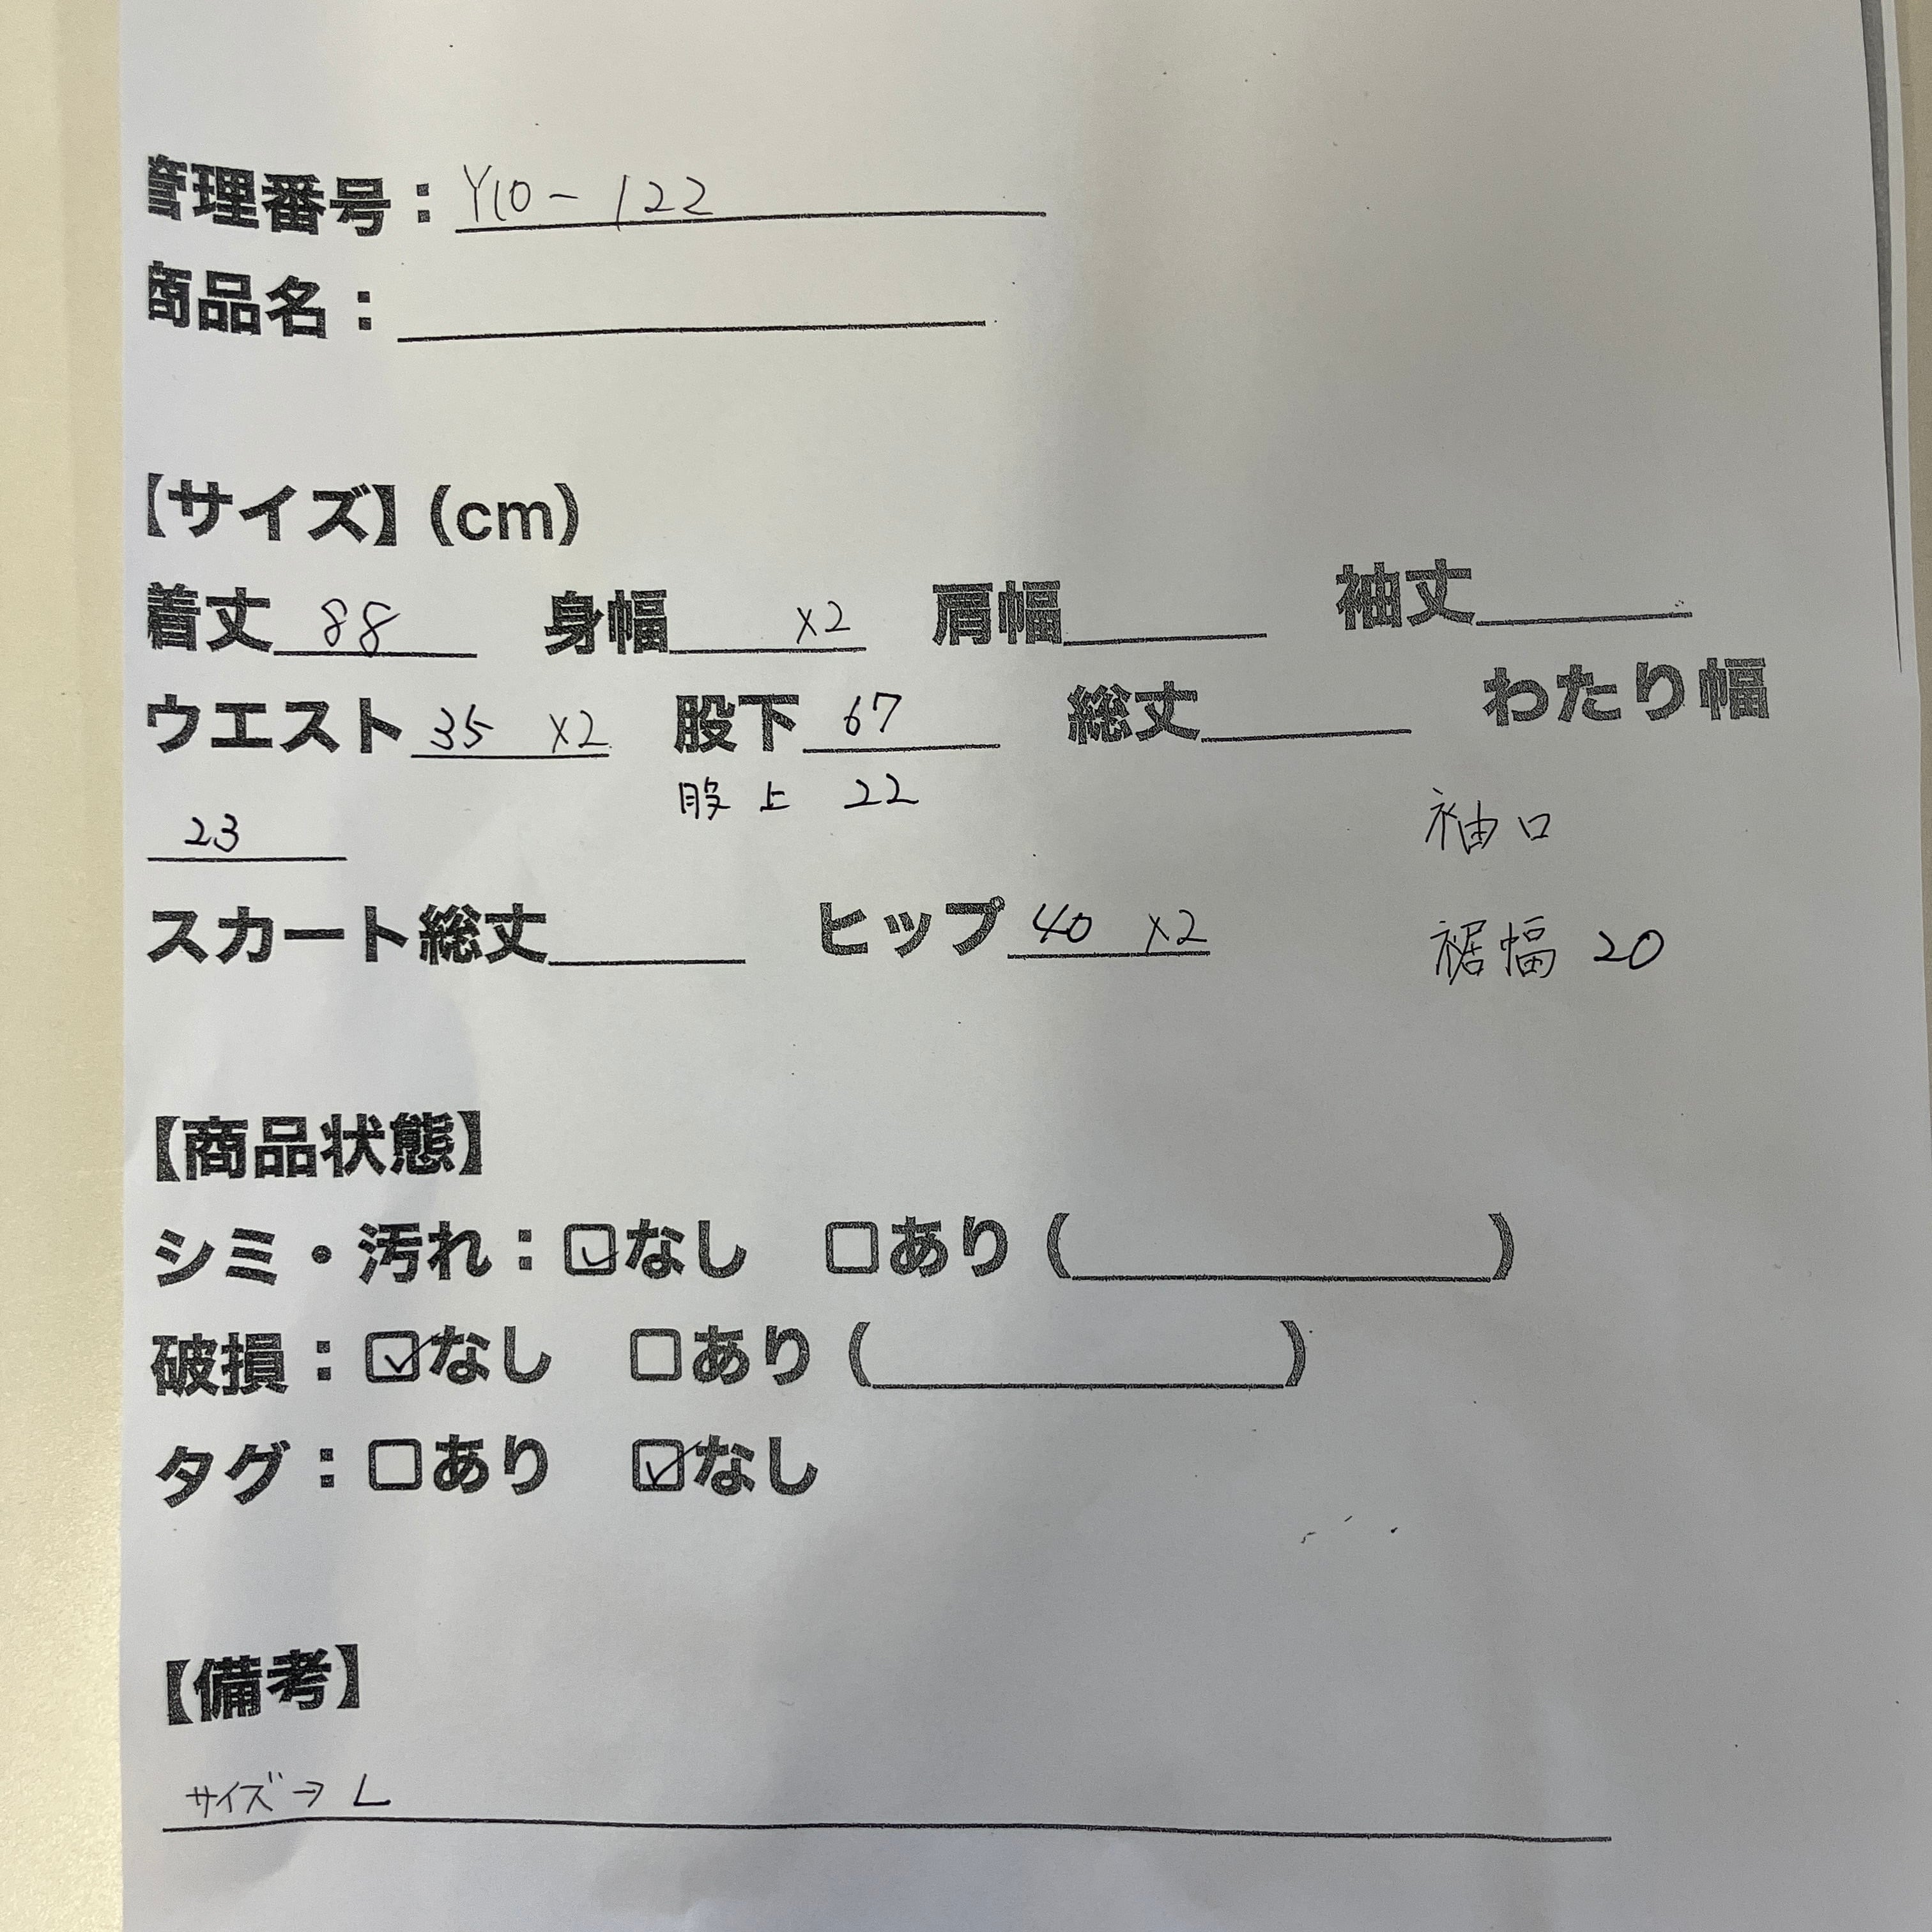 管理番号：Y10-122
商品名：
【サイズ】（cm）
着丈 88 身幅 ×2 肩幅 袖丈
ウエスト 35 ×2 股下 67 総丈 わたり幅
股上 22 袖口
23
スカート総丈 ヒップ 40 ×2 裾幅 20
【商品状態】
シミ・汚れ：☑なし □あり（ ）
破損：☑なし □あり（ ）
タグ：□あり ☑なし
【備考】
サイズ→L